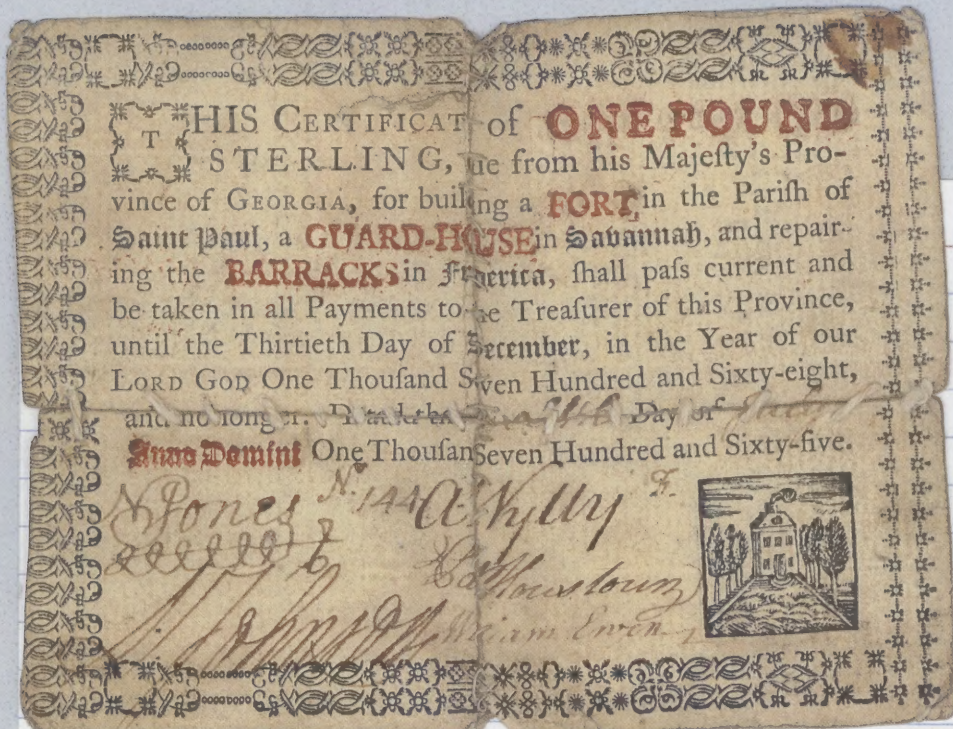 THIS CERTIFICAT of ONE POUND
STERLING, ue from his Majeſty's Pro-
vince of GEORGIA, for buil ng a FORT in the Pariſh of
Saint Paul, a GUARD-HOUSE in Savannah, and repair-
ing the BARRACKS in Frederica, ſhall paſs current and
be taken in all Payments to he Treaſurer of this Province,
until the Thirtieth Day of December, in the Year of our
LORD GOD One Thouſand Seven Hundred and Sixty-eight,
and no longer. Dated the Day of
Anno Domini One Thouſand Seven Hundred and Sixty-five.
N Jones No. 144 F.
Houstoun
N Johnson William Ewen